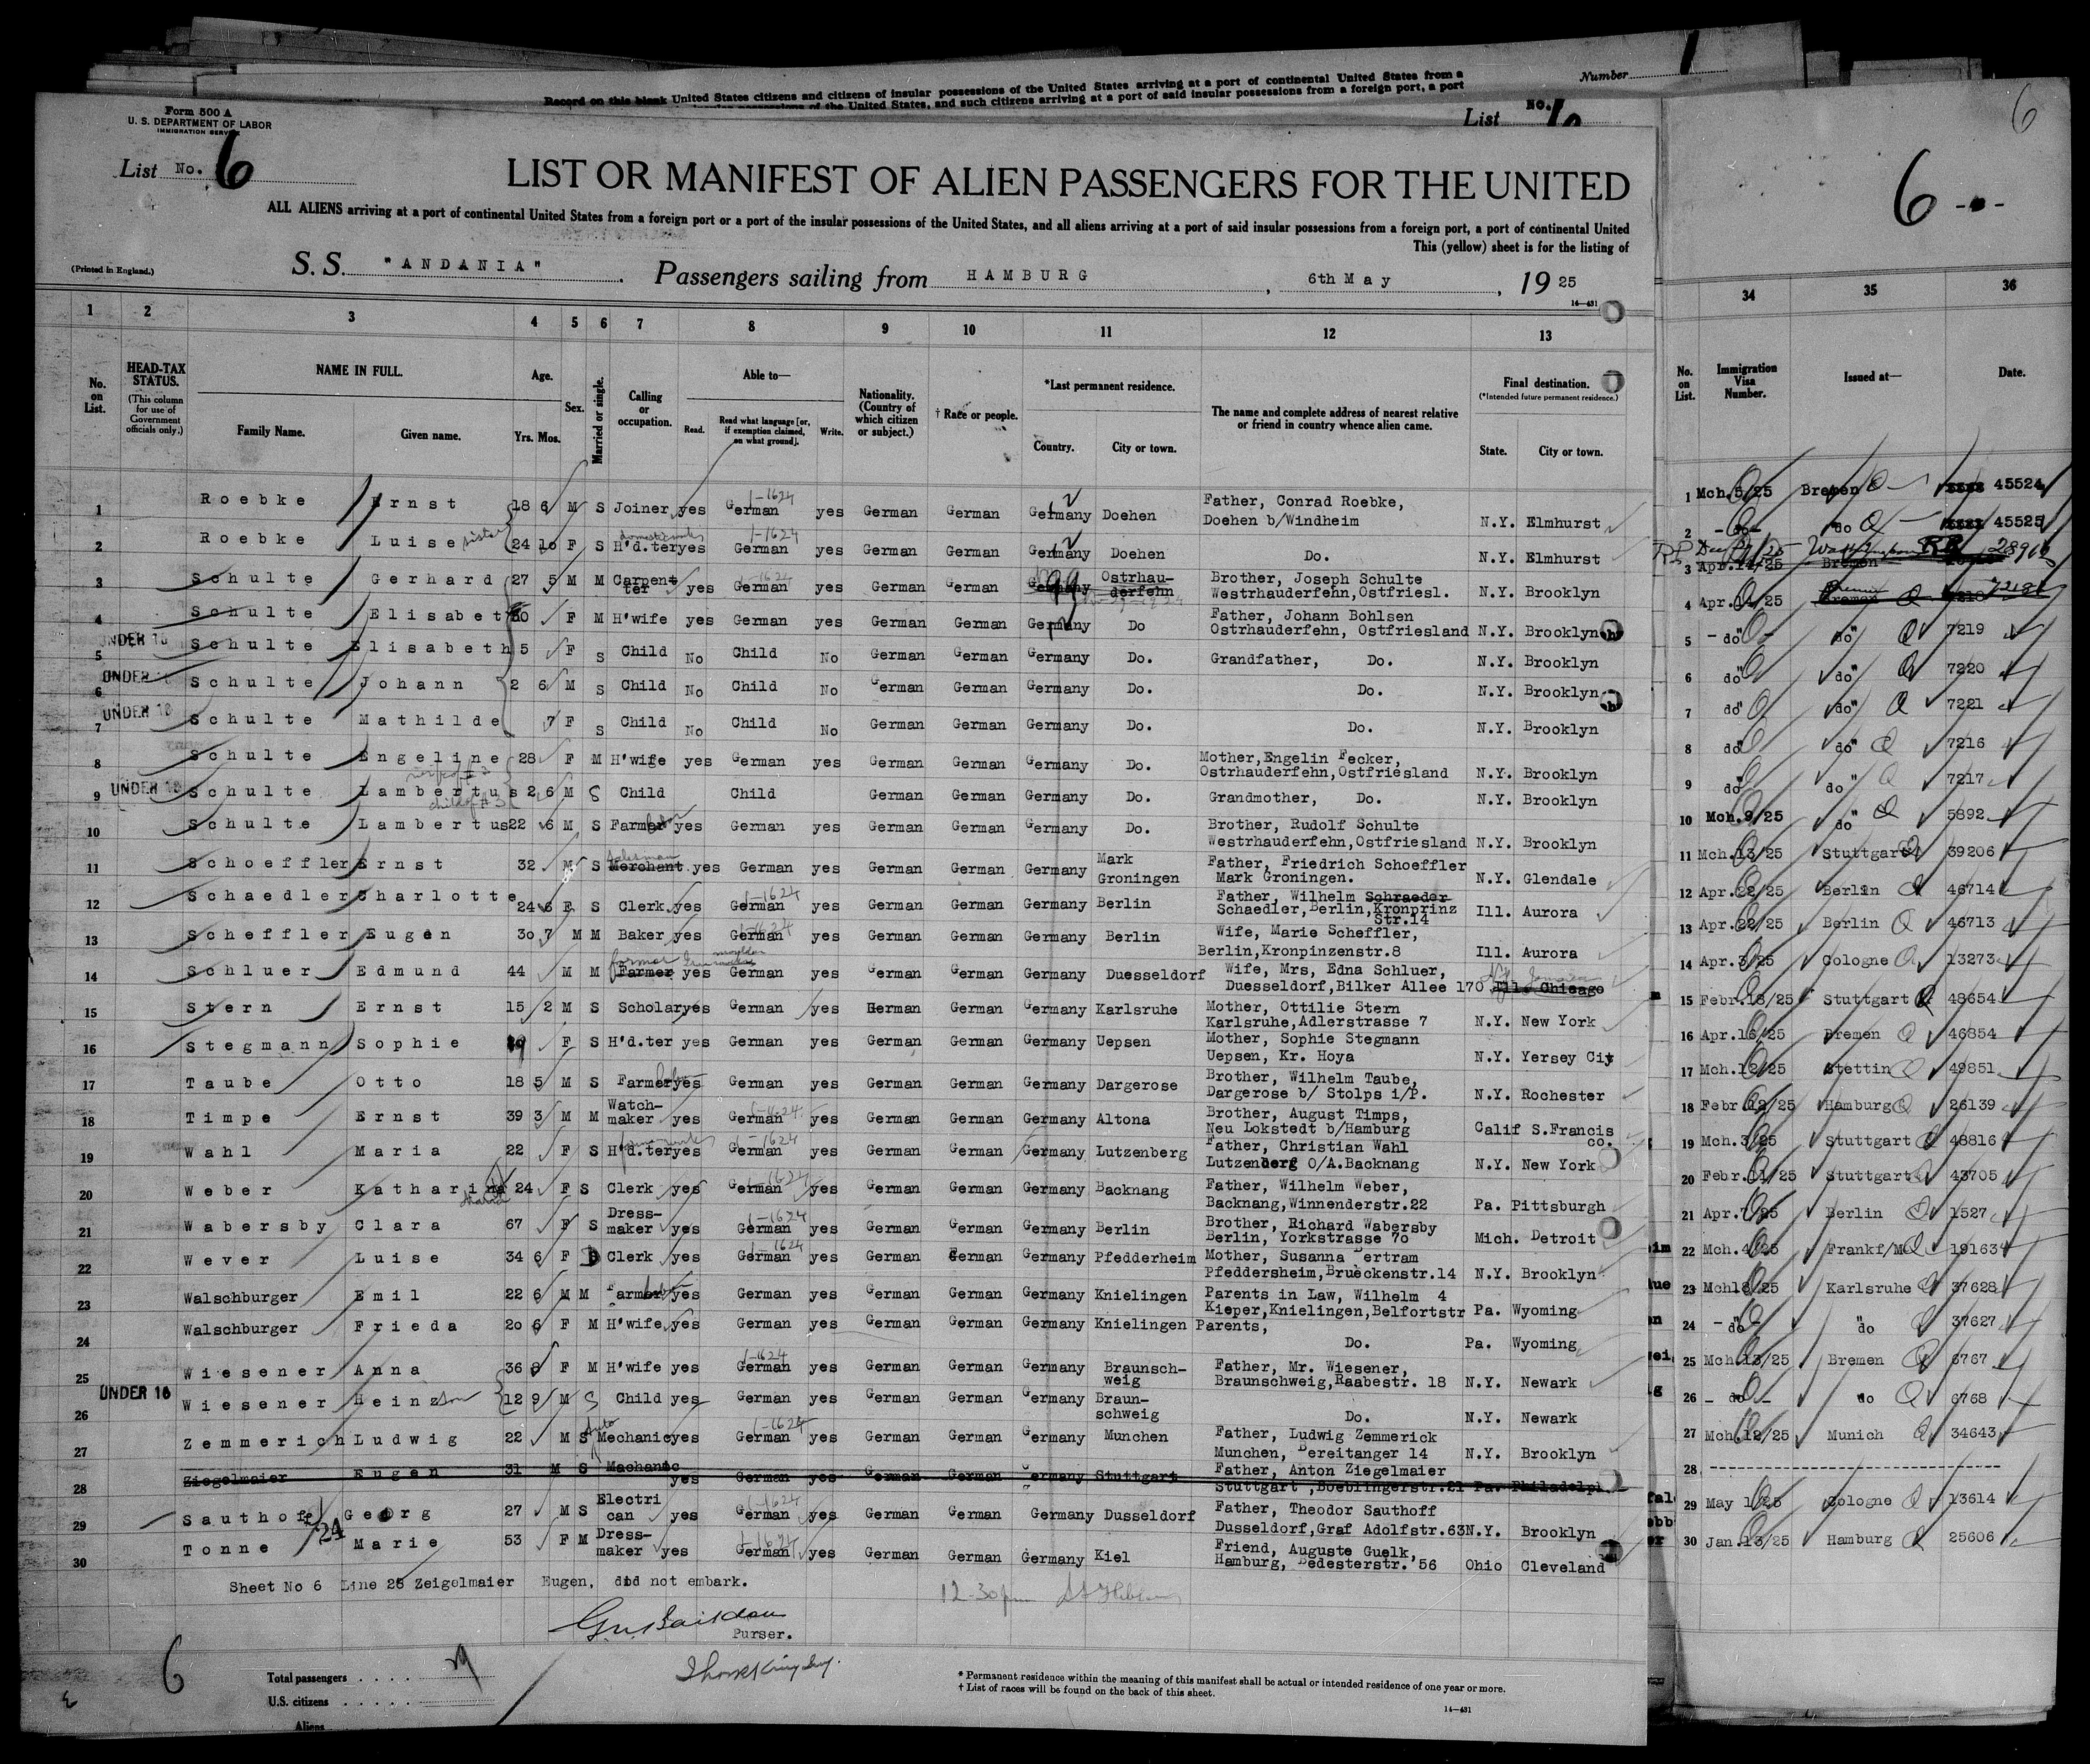 Record on this blank United States citizens and citizens of insular possessions of the United States arriving at a port of continental United States from a
of the United States, and such citizens arriving at a port of said insular possessions from a foreign port, a port
Number
List No.
Form 500 A
U. S. DEPARTMENT OF LABOR
IMMIGRATION SERVICE
List No. 6
LIST OR MANIFEST OF ALIEN PASSENGERS FOR THE UNITED
ALL ALIENS arriving at a port of continental United States from a foreign port or a port of the insular possessions of the United States, and all aliens arriving at a port of said insular possessions from a foreign port, a port of continental United
This (yellow) sheet is for the listing of
(Printed in England.)
S. S. "ANDANIA" Passengers sailing from HAMBURG, 6th May, 1925
14—431
1 2 3 4 5 6 7 8 9 10 11 12 13
No. on List.
HEAD-TAX STATUS.
(This column for use of Government officials only.)
NAME IN FULL.
Family Name. Given name.
Age.
Yrs. Mos.
Sex.
Married or single.
Calling or occupation.
Able to—
Read. Read what language [or, if exemption claimed, on what ground]. Write.
Nationality. (Country of which citizen or subject.)
† Race or people.
*Last permanent residence.
Country. City or town.
The name and complete address of nearest relative or friend in country whence alien came.
Final destination.
(*Intended future permanent residence.)
State. City or town.
1 Roebke Ernst 18 6 M S Joiner yes German yes German German Germany Doehen Father, Conrad Roebke, Doehen b/Windheim N.Y. Elmhurst
2 Roebke Luise sister 24 10 F S H'd.ter yes German yes German German Germany Doehen Do. N.Y. Elmhurst
3 Schulte Gerhard 27 5 M M Carpentter yes German yes German German Germany Ostrhauderfehn Brother, Joseph Schulte Westrhauderfehn,Ostfriesl. N.Y. Brooklyn
4 Schulte Elisabeth 30 F M H'wife yes German yes German German Germany Do Father, Johann Bohlsen Ostrhauderfehn, Ostfriesland N.Y. Brooklyn
UNDER 16
5 Schulte Elisabeth 5 F S Child No Child No German German Germany Do. Grandfather, Do. N.Y. Brooklyn
UNDER 16
6 Schulte Johann 2 6 M S Child No Child No German German Germany Do. Do. N.Y. Brooklyn
UNDER 16
7 Schulte Mathilde 7 F S Child No Child No German German Germany Do. Do. N.Y. Brooklyn
8 Schulte Engeline 28 F M H'wife yes German yes German German Germany Do. Mother,Engelin Fecker, Ostrhauderfehn,Ostfriesland N.Y. Brooklyn
UNDER 16
9 Schulte Lambertus 2 6 M S Child Child German German Germany Do. Grandmother, Do. N.Y. Brooklyn
10 Schulte Lambertus 22 6 M S Farmer yes German yes German German Germany Do. Brother, Rudolf Schulte Westrhauderfehn,Ostfriesland N.Y. Brooklyn
11 Schoeffler Ernst 32 M S Merchant salesman yes German yes German German Germany Mark Groningen Father, Friedrich Schoeffler Mark Groningen. N.Y. Glendale
12 Schaedler Charlotte 24 6 F S Clerk yes German yes German German Germany Berlin Father, Wilhelm Schraeder Schaedler,Berlin,Kronprinz Str.14 Ill. Aurora
13 Scheffler Eugen 30 7 M M Baker yes German yes German German Germany Berlin Wife, Marie Scheffler, Berlin,Kronpinzenstr.8 Ill. Aurora
14 Schluer Edmund 44 M M Farmer yes German yes German German Germany Duesseldorf Wife, Mrs, Edna Schluer, Duesseldorf,Bilker Allee 170 Ill. Chicago
15 Stern Ernst 15 2 M S Scholar yes German yes German German Germany Karlsruhe Mother, Ottilie Stern Karlsruhe,Adlerstrasse 7 N.Y. New York
16 Stegmann Sophie 19 F S H'd.ter yes German yes German German Germany Uepsen Mother, Sophie Stegmann Uepsen, Kr. Hoya N.Y. Yersey City
17 Taube Otto 18 5 M S Farmer yes German yes German German Germany Dargerose Brother, Wilhelm Taube, Dargerose b/ Stolps i/P. N.Y. Rochester
18 Timpe Ernst 39 3 M M Watchmaker yes German yes German German Germany Altona Brother, August Timps, Neu Lokstedt b/Hamburg Calif S.Francis co.
19 Wahl Maria 22 F S H'd.ter yes German yes German German Germany Lutzenberg Father, Christian Wahl Lutzenberg O/A.Backnang N.Y. New York
20 Weber Katharina 24 F S Clerk yes German yes German German Germany Backnang Father, Wilhelm Weber, Backnang,Winnenderstr.22 Pa. Pittsburgh
21 Wabersby Clara 67 F S Dress-maker yes German yes German German Germany Berlin Brother, Richard Wabersby Berlin, Yorkstrasse 70 Mich. Detroit
22 Wever Luise 34 6 F D Clerk yes German yes German German Germany Pfedderheim Mother, Susanna Bertram Pfeddersheim,Brueckenstr.14 N.Y. Brooklyn
23 Walschburger Emil 22 6 M M Farmer yes German yes German German Germany Knielingen Parents in Law, Wilhelm 4 Kieper,Knielingen,Belfortstr Pa. Wyoming
24 Walschburger Frieda 20 6 F M H'wife yes German yes German German Germany Knielingen Parents, Do. Pa. Wyoming
25 Wiesener Anna 36 8 F M H'wife yes German yes German German Germany Braunschweig Father, Mr. Wiesener, Braunschweig,Raabestr. 18 N.Y. Newark
UNDER 16
26 Wiesener Heinz son 12 9 M S Child yes German yes German German Germany Braunschweig Do. N.Y. Newark
27 Zemmerich Ludwig 22 M S Auto Mechanic yes German yes German German Germany Munchen Father, Ludwig Zemmerick Munchen, Bereitanger 14 N.Y. Brooklyn
28 Ziegelmaier Eugen 31 M S Machanic yes German yes German German Germany Stuttgart Father, Anton Ziegelmaier Stuttgart,Boeblingerstr.21 Pa. Philadelph
29 Sauthoff Georg 27 M S Electrican yes German yes German German Germany Dusseldorf Father, Theodor Sauthoff Dusseldorf,Graf Adolfstr.63 N.Y. Brooklyn
30 Tonne 24 Marie 53 F M Dress-maker yes German yes German German Germany Kiel Friend, Auguste Guelk, Hamburg, Bedesterstr. 56 Ohio Cleveland
Sheet No 6 Line 28 Zeigelmaier Eugen, did not embark.
12-30pm
Purser.
6
Total passengers
U.S. citizens
Aliens
* Permanent residence within the meaning of this manifest shall be actual or intended residence of one year or more.
† List of races will be found on the back of this sheet.
14—431
6
6
34 35 36
No. on List.
Immigration Visa Number.
Issued at—
Date.
1 Mch.5/25 Bremen 45524
2 - do - do 45525
3 Apr.14/25 Bremen 28966
4 Apr.14/25 Bremen 7218
5 - do - do 7219
6 do do 7220
7 do do 7221
8 do do 7216
9 do do 7217
10 Mch.9/25 do 5892
11 Mch.13/25 Stuttgart 39206
12 Apr.22/25 Berlin 46714
13 Apr.22/25 Berlin 46713
14 Apr.3/25 Cologne 13273
15 Febr.18/25 Stuttgart 48654
16 Apr.16/25 Bremen 46854
17 Mch.12/25 Stettin 49851
18 Febr.12/25 Hamburg 26139
19 Mch.3/25 Stuttgart 48816
20 Febr.11/25 Stuttgart 43705
21 Apr.7/25 Berlin 1527
22 Mch.4/25 Frankf/M 19163
23 Mch18/25 Karlsruhe 37628
24 - do do 37627
25 Mch.13/25 Bremen 6767
26 - do - do 6768
27 Mch.12/25 Munich 34643
28
29 May 1/25 Cologne 13614
30 Jan.13/25 Hamburg 25606